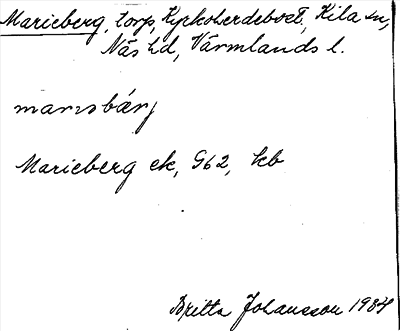 Marieberg, torp, Kyrkoherdebost., Kila sn,
Näs hd, Värmlands l.
marısbärj
Marieberg ek, G62, kb
Britta Johansson 1984